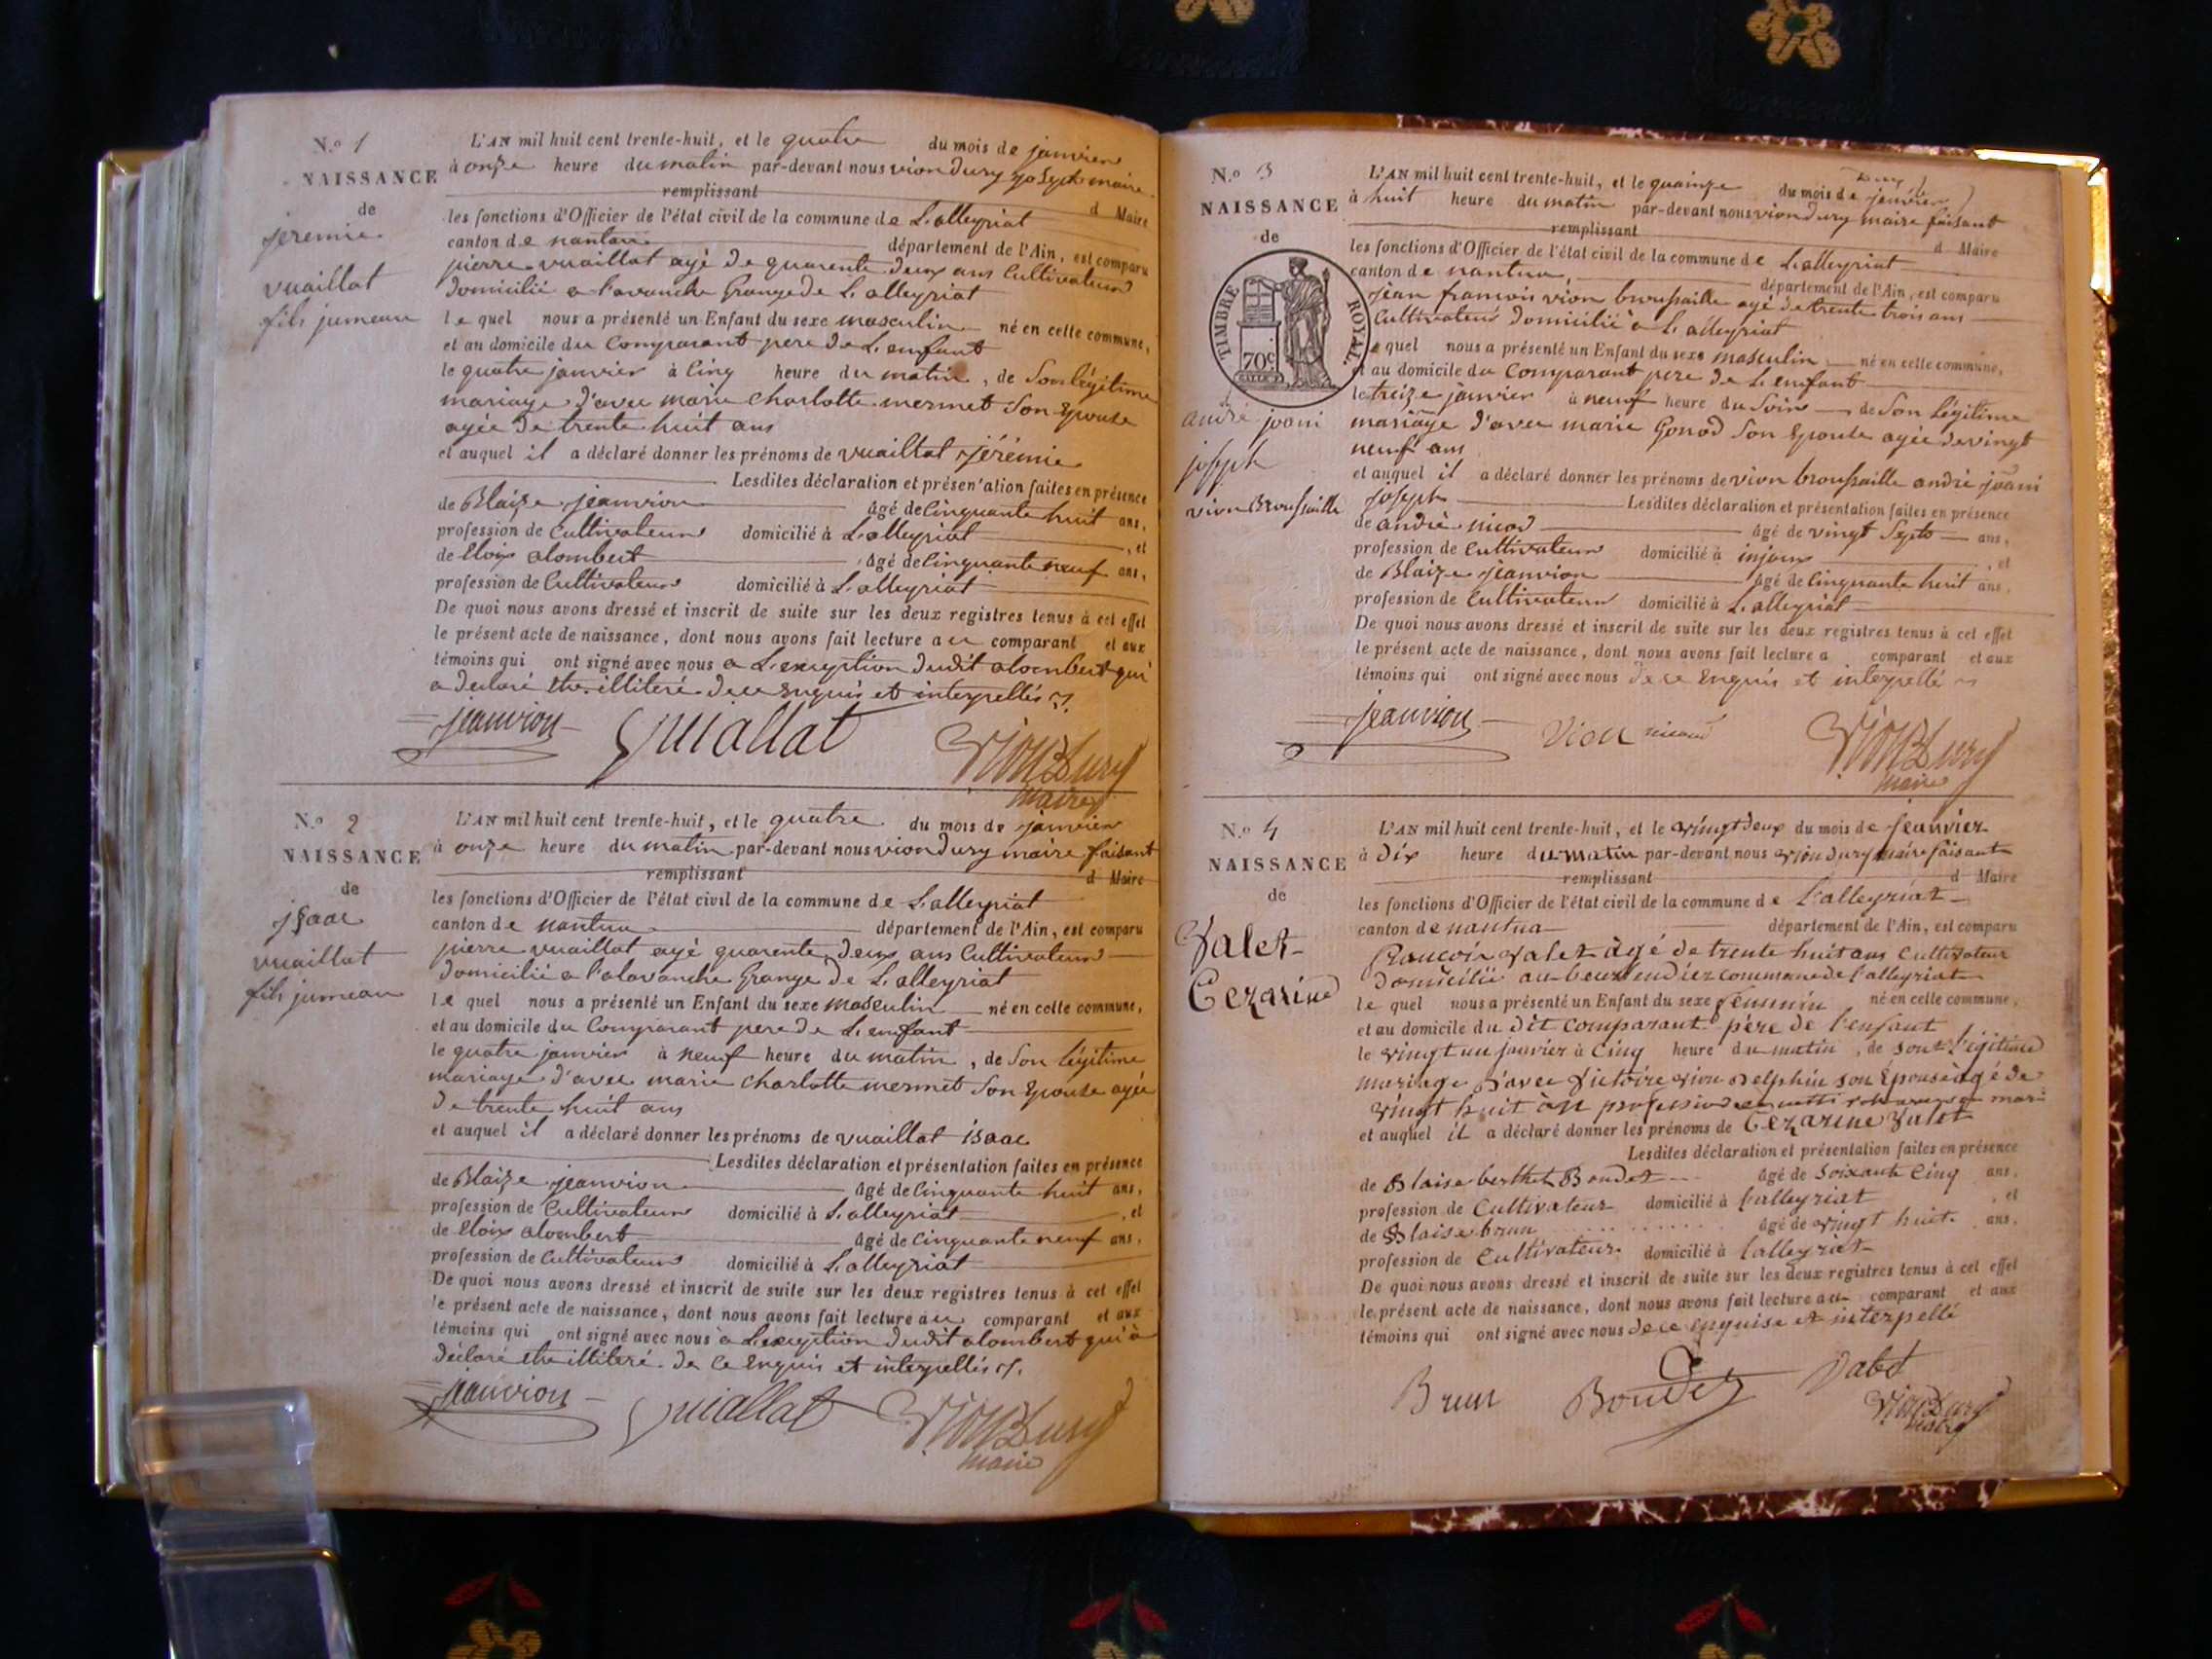 N.o 1
NAISSANCE
de
jeremie
vuaillat
fils jumeau
L'AN mil huit cent trente-huit, et le quatre du mois de janvier
à onze heure du matin par-devant nous vion dury joseph maire
remplissant d Maire
les fonctions d'Officier de l'état civil de la commune de L'alleyriat
canton de nantua département de l'Ain, est comparu
pierre vuaillat agé de quarente deux ans Cultivateur
domicilié a l'avanche Grange de L'alleyriat
le quel nous a présenté un Enfant du sexe masculin né en cette commune,
et au domicile du Comparant pere de L'enfant
le quatre janvier à Cinq heure du matin, de Son légitime
mariage d'avec marie Charlotte mermet Son Epouse
agée de trente huit ans
et auquel il a déclaré donner les prénoms de vuaillat jérémie
Lesdites déclaration et présen'ation faites en présence
de Blaize jeanvion âgé de Cinquante huit ans,
profession de Cultivateur domicilié à L'alleyriat, et
de Eloix alombert âgé de Cinquante neuf ans,
profession de Cultivateur domicilié à L'alleyriat
De quoi nous avons dressé et inscrit de suite sur les deux registres tenus à cet effet
le présent acte de naissance, dont nous avons fait lecture au comparant et aux
témoins qui ont signé avec nous a L'exeyption dudit alombert qui
a declaré etre illiteré de ce Enquis et interpellés
jeanvion Vuiallat VionDury
maire
N.o 2
NAISSANCE
de
jsaac
vuaillat
fils jumeau
L'AN mil huit cent trente-huit, et le quatre du mois de janvier
à onze heure du matin par-devant nous vion dury maire faisant
remplissant d Maire
les fonctions d'Officier de l'état civil de la commune de L'alleyriat
canton de nantua département de l'Ain, est comparu
pierre vuaillat agé quarente deux ans Cultivateur
domicilié a l'alavanche Grange de L'alleyriat
le quel nous a présenté un Enfant du sexe masculin né en cette commune,
et au domicile du Comparant pere de L'enfant
le quatre janvier à neuf heure du matin, de Son légitime
mariage d'avec marie Charlotte mermet Son Epouse agée
de trente huit ans
et auquel il a déclaré donner les prénoms de vuaillat isaac
Lesdites déclaration et présentation faites en présence
de Blaize jeanvion âgé de Cinquante huit ans,
profession de Cultivateur domicilié à L'alleyriat, et
de Eloix alombert âgé de Cinquante neuf ans,
profession de Cultivateur domicilié à L'alleyriat
De quoi nous avons dressé et inscrit de suite sur les deux registres tenus à cet effet
le présent acte de naissance, dont nous avons fait lecture au comparant et aux
témoins qui ont signé avec nous a L'exeyption dudit alombert qui à
déclaré etre illiteré de Ce Enquis et interpellés
jeanvion Vuiallat VionDury
maire
N.o 3
NAISSANCE
de
TIMBRE ROYAL.
70c.
andré joani
joseph
vion Broussaille
L'AN mil huit cent trente-huit, et le quainze du mois de janvier
à huit heure du matin par-devant nous vion dury maire faisant
remplissant d Maire
les fonctions d'Officier de l'état civil de la commune de L'alleyriat
canton de nantua, département de l'Ain, est comparu
jean francois vion broussaille agé de trente trois ans
Cultivateur domicilié à L'alleyriat
le quel nous a présenté un Enfant du sexe masculin né en cette commune,
et au domicile du Comparant pere de L'enfant
le treize janvier à neuf heure du Soire de Son légitime
mariage d'avec marie Gonod Son Epouse agée de vingt
neuf ans
et auquel il a déclaré donner les prénoms de vion broussaille andré joani
joseph Lesdites déclaration et présentation faites en présence
de andré nicod âgé de vingt Septe ans,
profession de Cultivateur domicilié à injoux, et
de Blaize jeanvion âgé de Cinquante huit ans,
profession de Cultivateur domicilié à L'alleyriat
De quoi nous avons dressé et inscrit de suite sur les deux registres tenus à cet effet
le présent acte de naissance, dont nous avons fait lecture a comparant et aux
témoins qui ont signé avec nous de ce Enquis et interpellé
jeanvion Vion nicod VionDury
maire
N.o 4
NAISSANCE
de
Valet
Cezarine
L'AN mil huit cent trente-huit, et le vingt deux du mois de Jeanvier
à dix heure du matin par-devant nous vion dury maire faisant
remplissant d Maire
les fonctions d'Officier de l'état civil de la commune de l'alleyriat
canton de nantua département de l'Ain, est comparu
francois valet âgé de trente huit ans cultivateur
domicilié au commune de l'alleyriat
le quel nous a présenté un Enfant du sexe féminin né en cette commune,
et au domicile du dit comparant père de l'enfant
le vingt un janvier à Cinq heure du matin, de son légitime
mariage d'avec victoire vion delphin son Epouse agé de
vingt huit an profession
et auquel il a déclaré donner les prénoms de Cezarine Valet
Lesdites déclaration et présentation faites en présence
de Blaise berthet Boudet âgé de soixante Cinq ans,
profession de Cultivateur domicilié à l'alleyriat, et
de Blaise brun âgé de vingt huit ans,
profession de Cultivateur domicilié à l'alleyriat
De quoi nous avons dressé et inscrit de suite sur les deux registres tenus à cet effet
le présent acte de naissance, dont nous avons fait lecture au comparant et aux
témoins qui ont signé avec nous de ce enquise et interpellé
Brun Boudet Valet
VionDury
maire